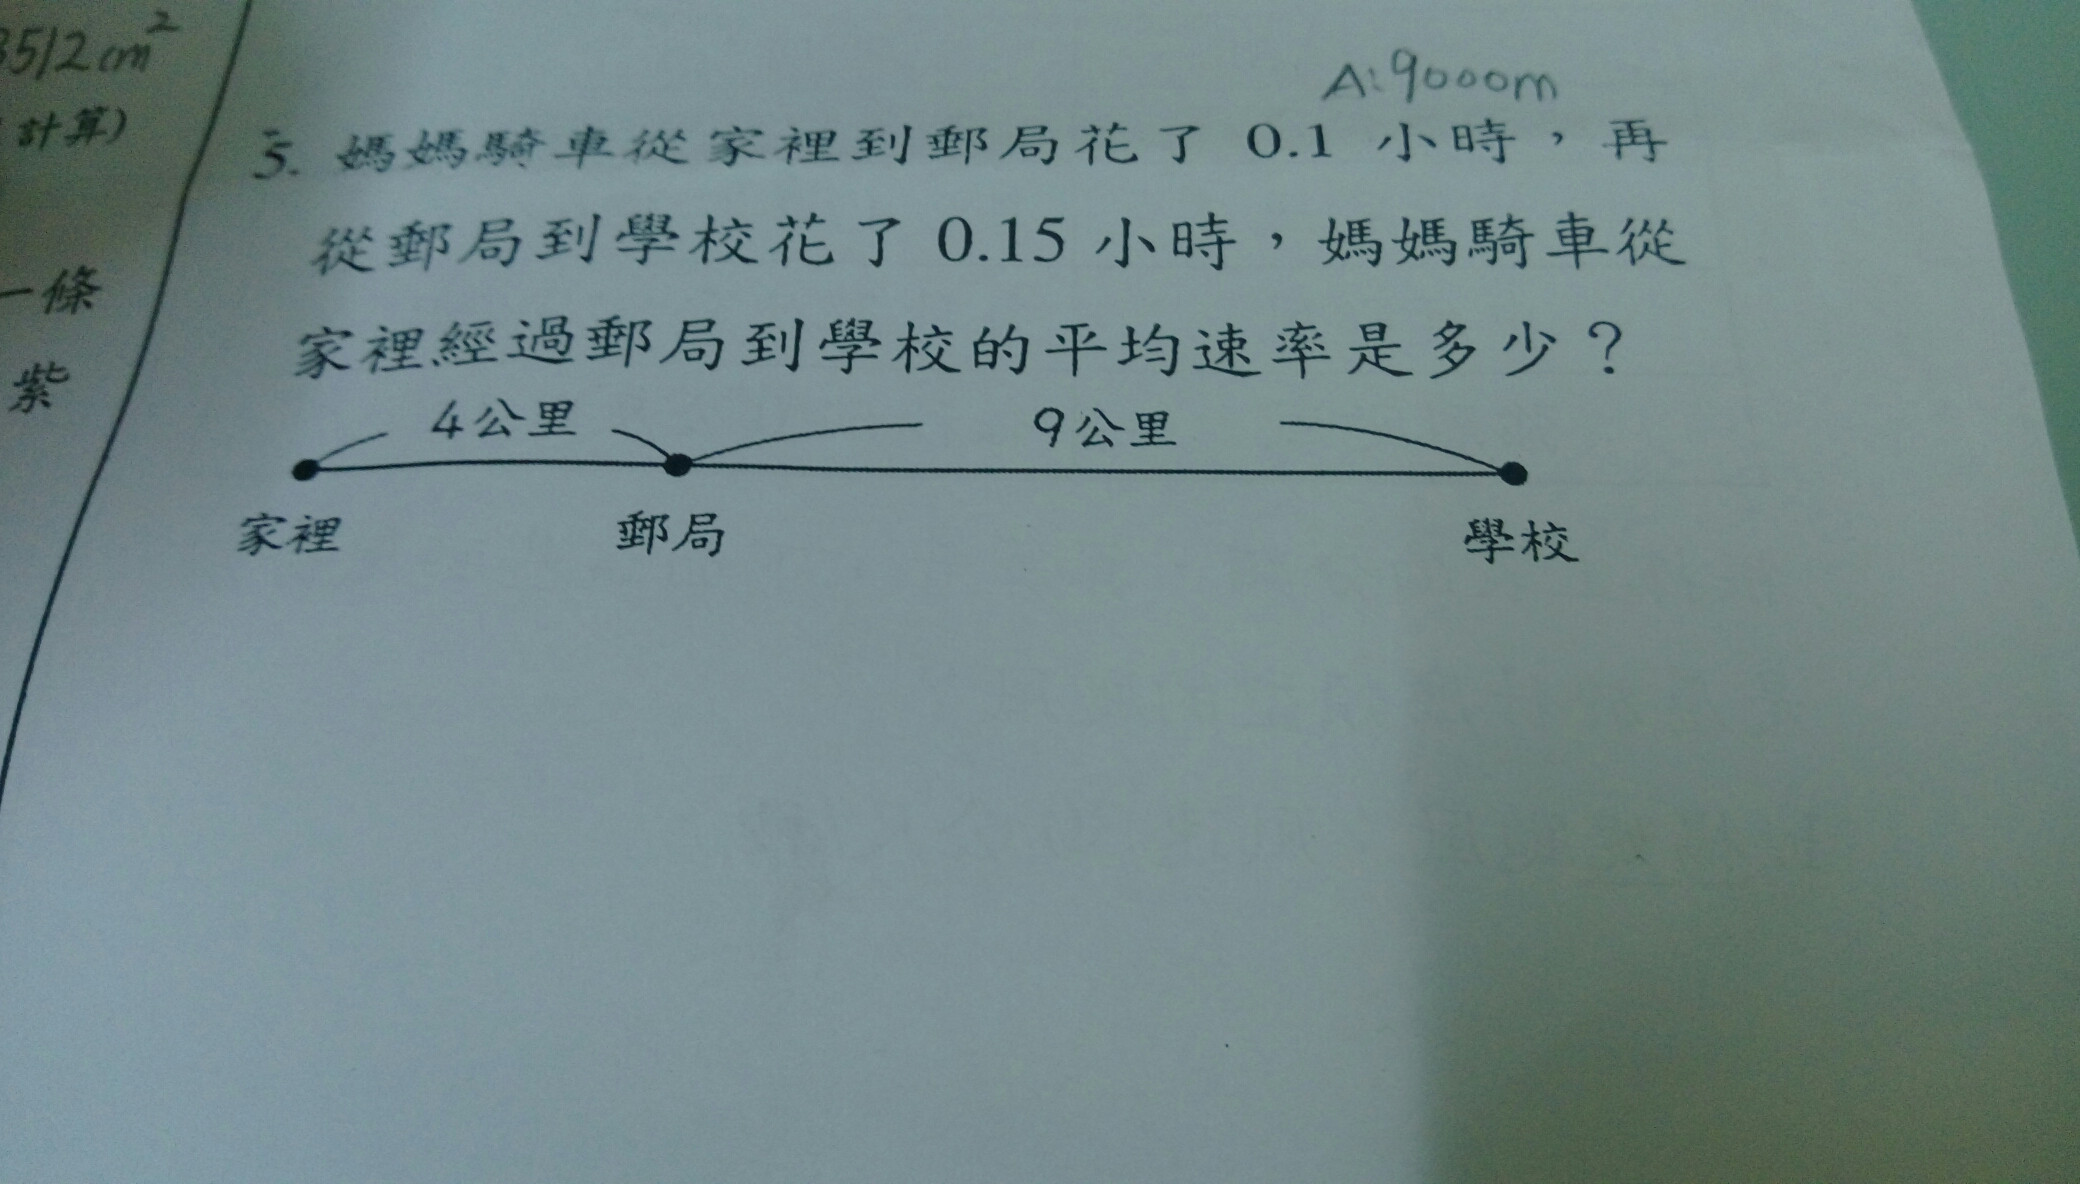 3512cm²
計算)
一條
紫
A:9000m
5. 媽媽騎車從家裡到郵局花了 0.1 小時，再
從郵局到學校花了 0.15 小時，媽媽騎車從
家裡經過郵局到學校的平均速率是多少？
4公里 9公里
家裡 郵局 學校